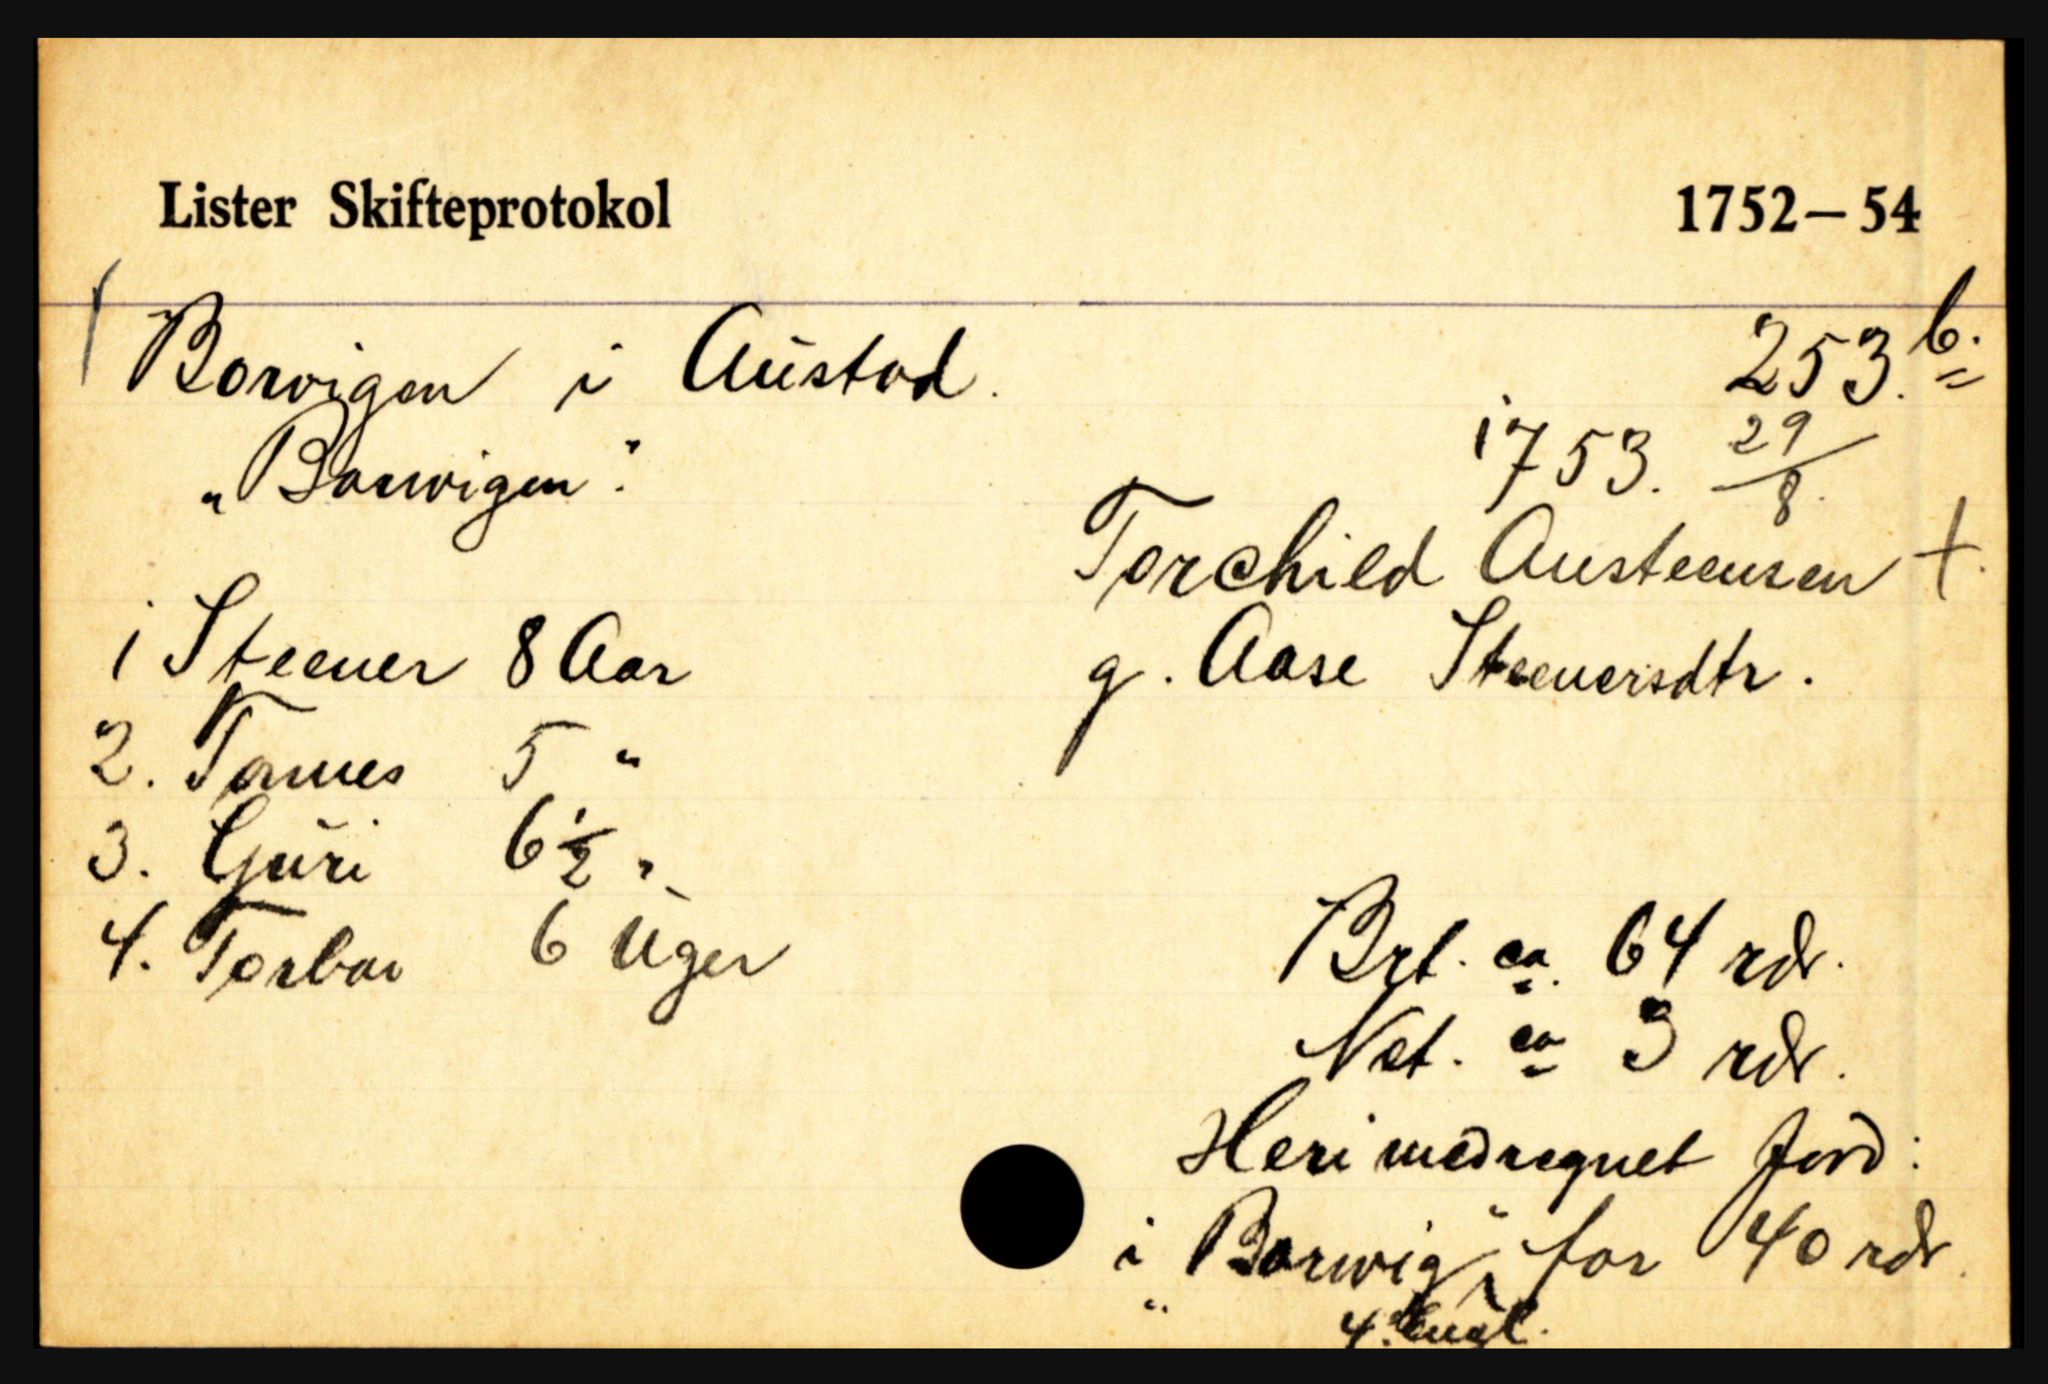 Lister Skifteprotokol 1752–54
Borvigen i Austad. 253.b.
"Borwigen". 1753. 29/8.
Torchild Austeensen †.
g. Aase Steenersdtr.
1 Steener 8 Aar
2. Tønnes 5 "
3. Guri 6½ "
4. Torbor 6 Uger
Brt. ca. 64 rdr.
Net. ca 3 rdr.
Heri medregnet Jord:
i "Borwig" for 40 rdr.
4. Engl.